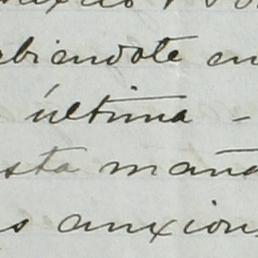 biendote en
última -
sta maña
s anxious